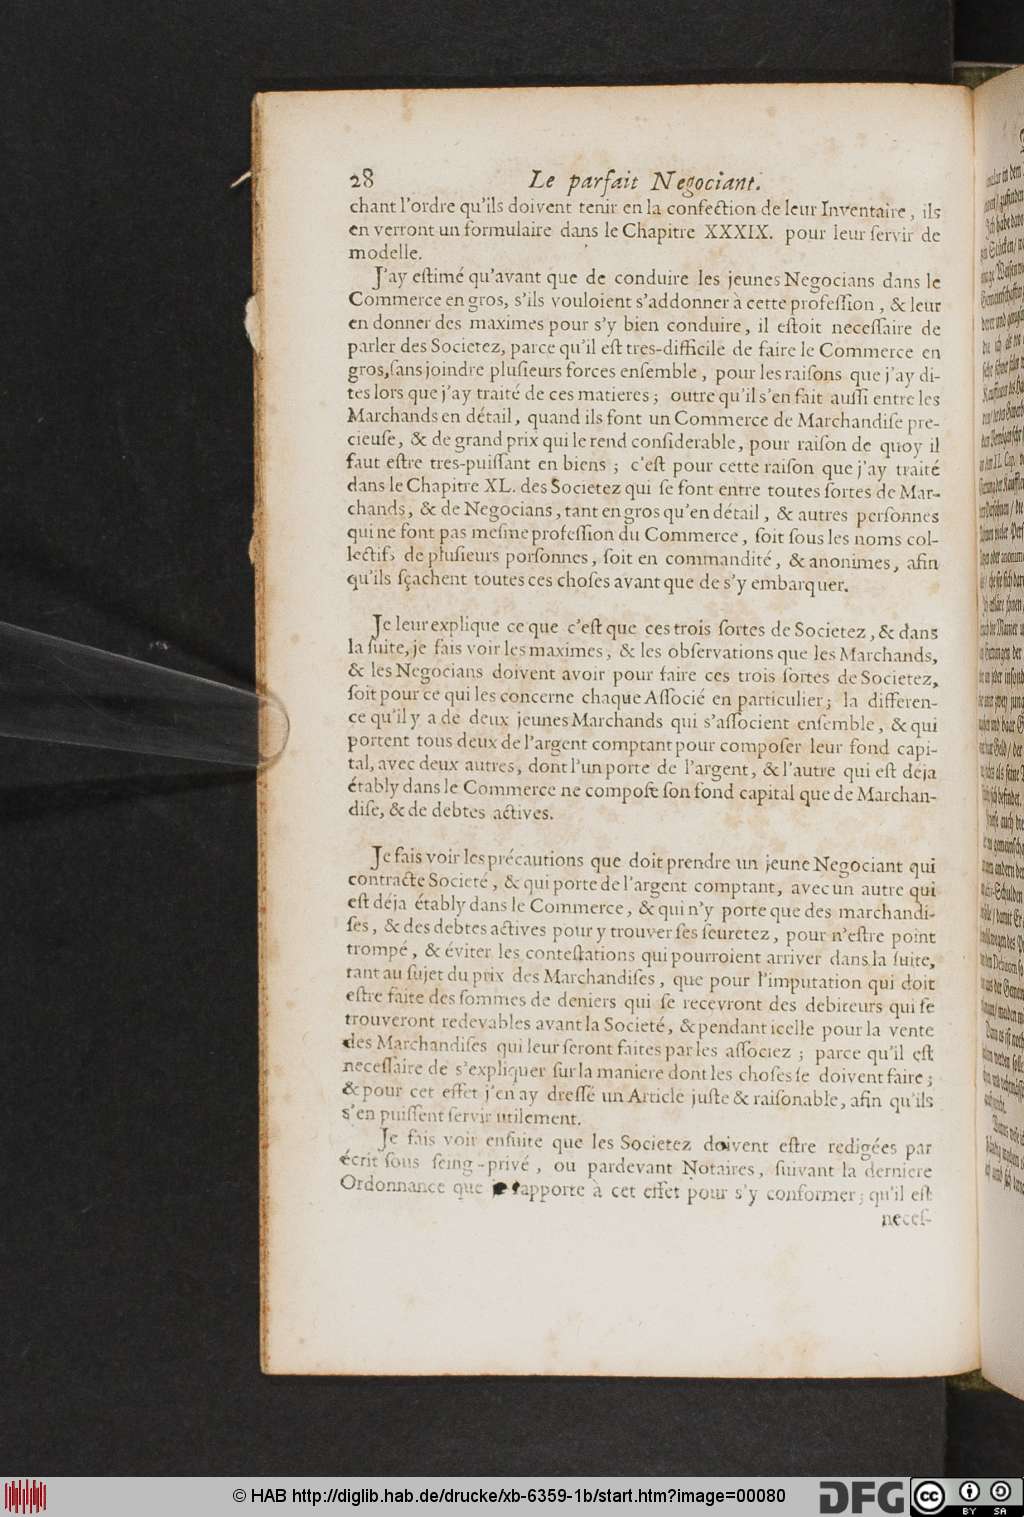 28 Le parfait Negociant.
chant l'ordre qu'ils doivent tenir en la confection de leur Inventaire, ils
en verront un formulaire dans le Chapitre XXXIX. pour leur ſervir de
modelle.
J'ay eſtimé qu'avant que de conduire les jeunes Negocians dans le
Commerce en gros, s'ils vouloient s'addonner à cette profeſſion, & leur
en donner des maximes pour s'y bien conduire, il eſtoit neceſſaire de
parler des Societez, parce qu'il eſt tres-difficile de faire le Commerce en
gros, ſans joindre pluſieurs forces enſemble, pour les raiſons que j'ay di-
tes lors que j'ay traité de ces matieres; outre qu'il s'en fait auſſi entre les
Marchands en détail, quand ils font un Commerce de Marchandiſe pre-
cieuſe, & de grand prix qui le rend conſiderable, pour raiſon de quoy il
faut eſtre tres-puiſſant en biens; c'eſt pour cette raiſon que j'ay traité
dans le Chapitre XL. des Societez qui ſe font entre toutes ſortes de Mar-
chands, & de Negocians, tant en gros qu'en détail, & autres perſonnes
qui ne font pas meſme profeſſion du Commerce, ſoit ſous les noms col-
lectifs de pluſieurs porſonnes, ſoit en commandité, & anonimes, afin
qu'ils ſçachent toutes ces choſes avant que de s'y embarquer.
Je leur explique ce que c'eſt que ces trois ſortes de Societez, & dans
la ſuite, je fais voir les maximes, & les obſervations que les Marchands,
& les Negocians doivent avoir pour faire ces trois ſortes de Societez,
ſoit pour ce qui les concerne chaque Aſſocié en particulier; la differen-
ce qu'il y a de deux jeunes Marchands qui s'aſſocient enſemble, & qui
portent tous deux de l'argent comptant pour compoſer leur fond capi-
tal, avec deux autres, dont l'un porte de l'argent, & l'autre qui eſt deja
étably dans le Commerce ne compoſe ſon fond capital que de Marchan-
diſe, & de debtes actives.
Je fais voir les précautions que doit prendre un jeune Negociant qui
contracte Societé, & qui porte de l'argent comptant, avec un autre qui
eſt déja étably dans le Commerce, & qui n'y porte que des marchandi-
ſes, & des debtes actives pour y trouver ſes ſeuretez, pour n'eſtre point
trompé, & éviter les conteſtations qui pourroient arriver dans la ſuite,
tant au ſujet du prix des Marchandiſes, que pour l'imputation qui doit
eſtre faite des ſommes de deniers qui ſe recevront des debiteurs qui ſe
trouveront redevables avant la Societé, & pendant icelle pour la vente
des Marchandiſes qui leur ſeront faites par les aſſociez; parce qu'il eſt
neceſſaire de s'expliquer ſur la maniere dont les choſes ſe doivent faire;
& pour cet effet j'en ay dreſſé un Article juſte & raiſonable, afin qu'ils
s'en puiſſent ſervir utilement.
Je fais voir enſuite que les Societez doivent eſtre redigées par
écrit ſous ſeing-privé, ou pardevant Notaires, ſuivant la derniere
Ordonnance que je rapporte à cet effet pour s'y conformer; qu'il eſt
neceſ-
© HAB http://diglib.hab.de/drucke/xb-6359-1b/start.htm?image=00080
DFG
cc
BY SA